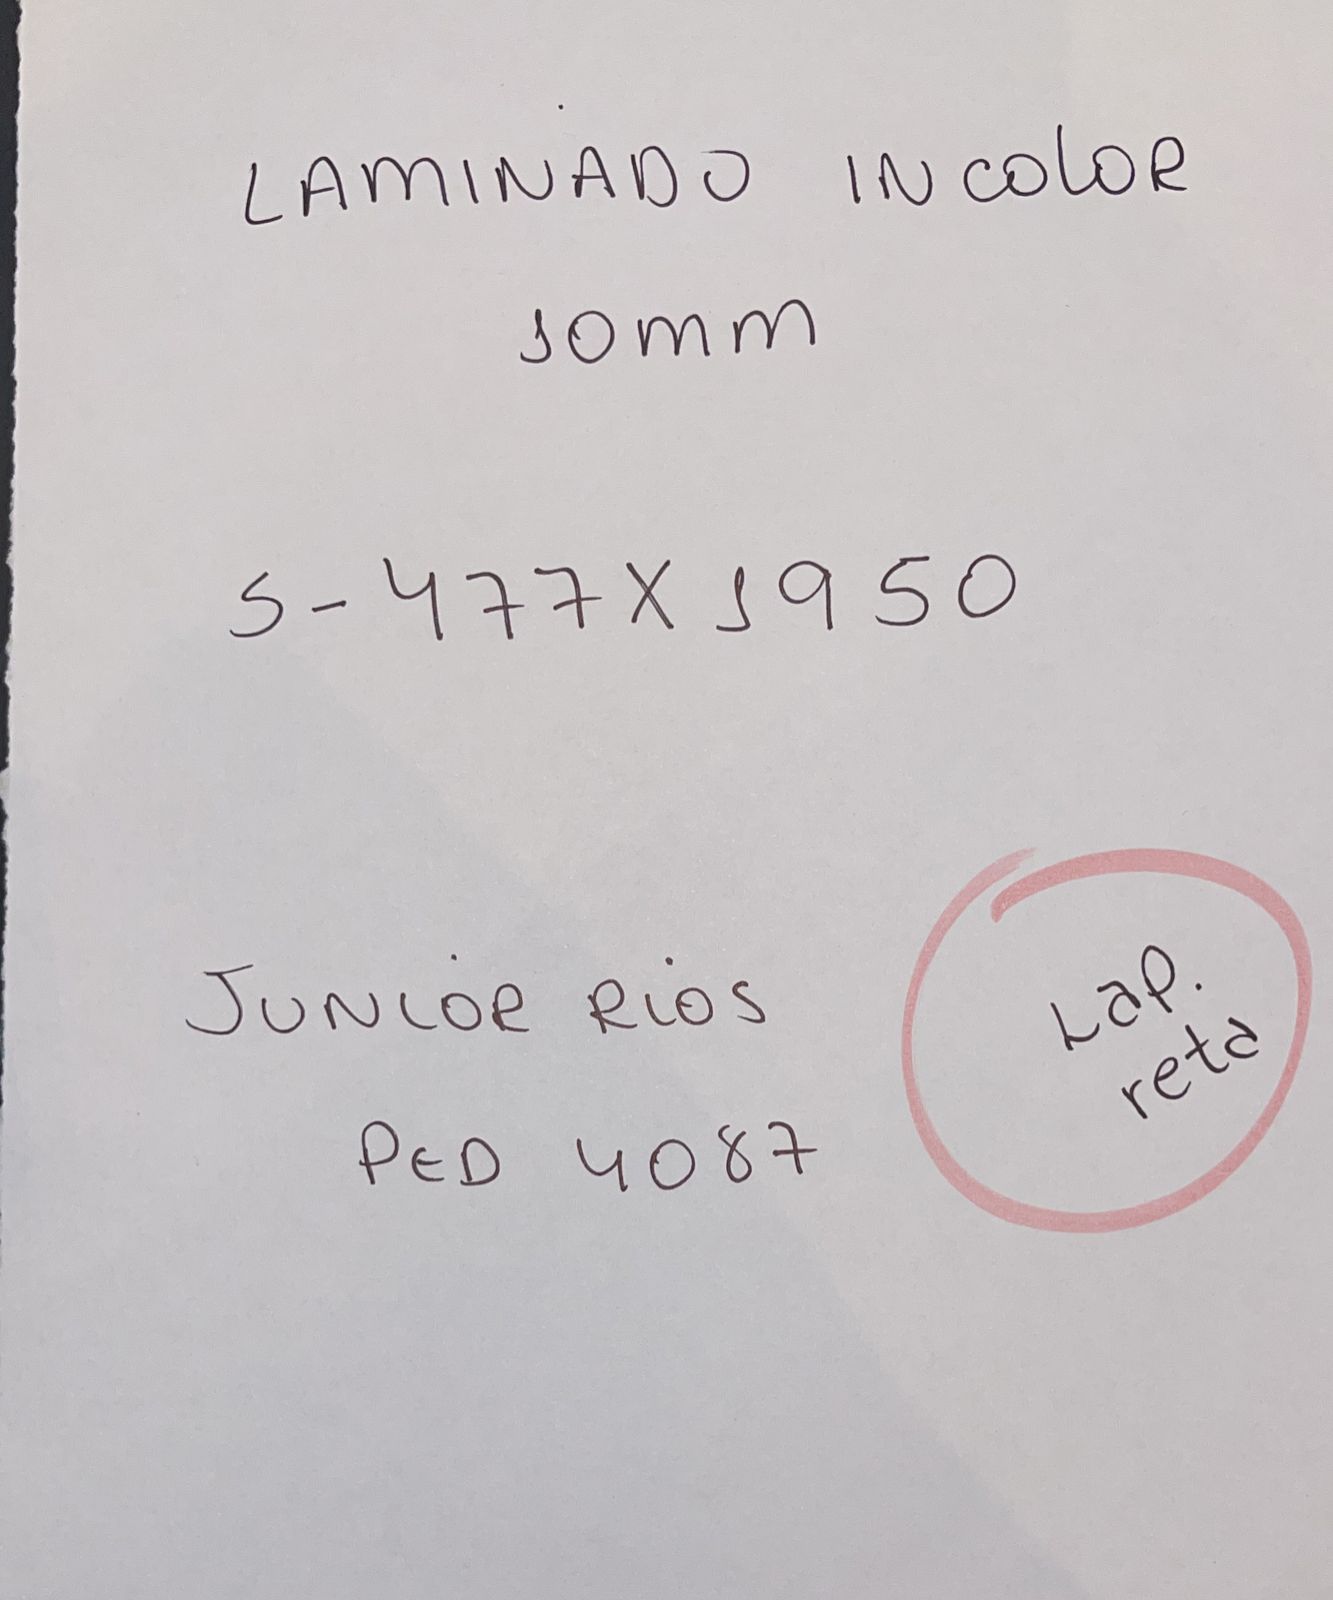 LAMINADO INCOLOR
10mm
5-477X1950
JUNIOR RIOS
Lap.
reta
PED 4087